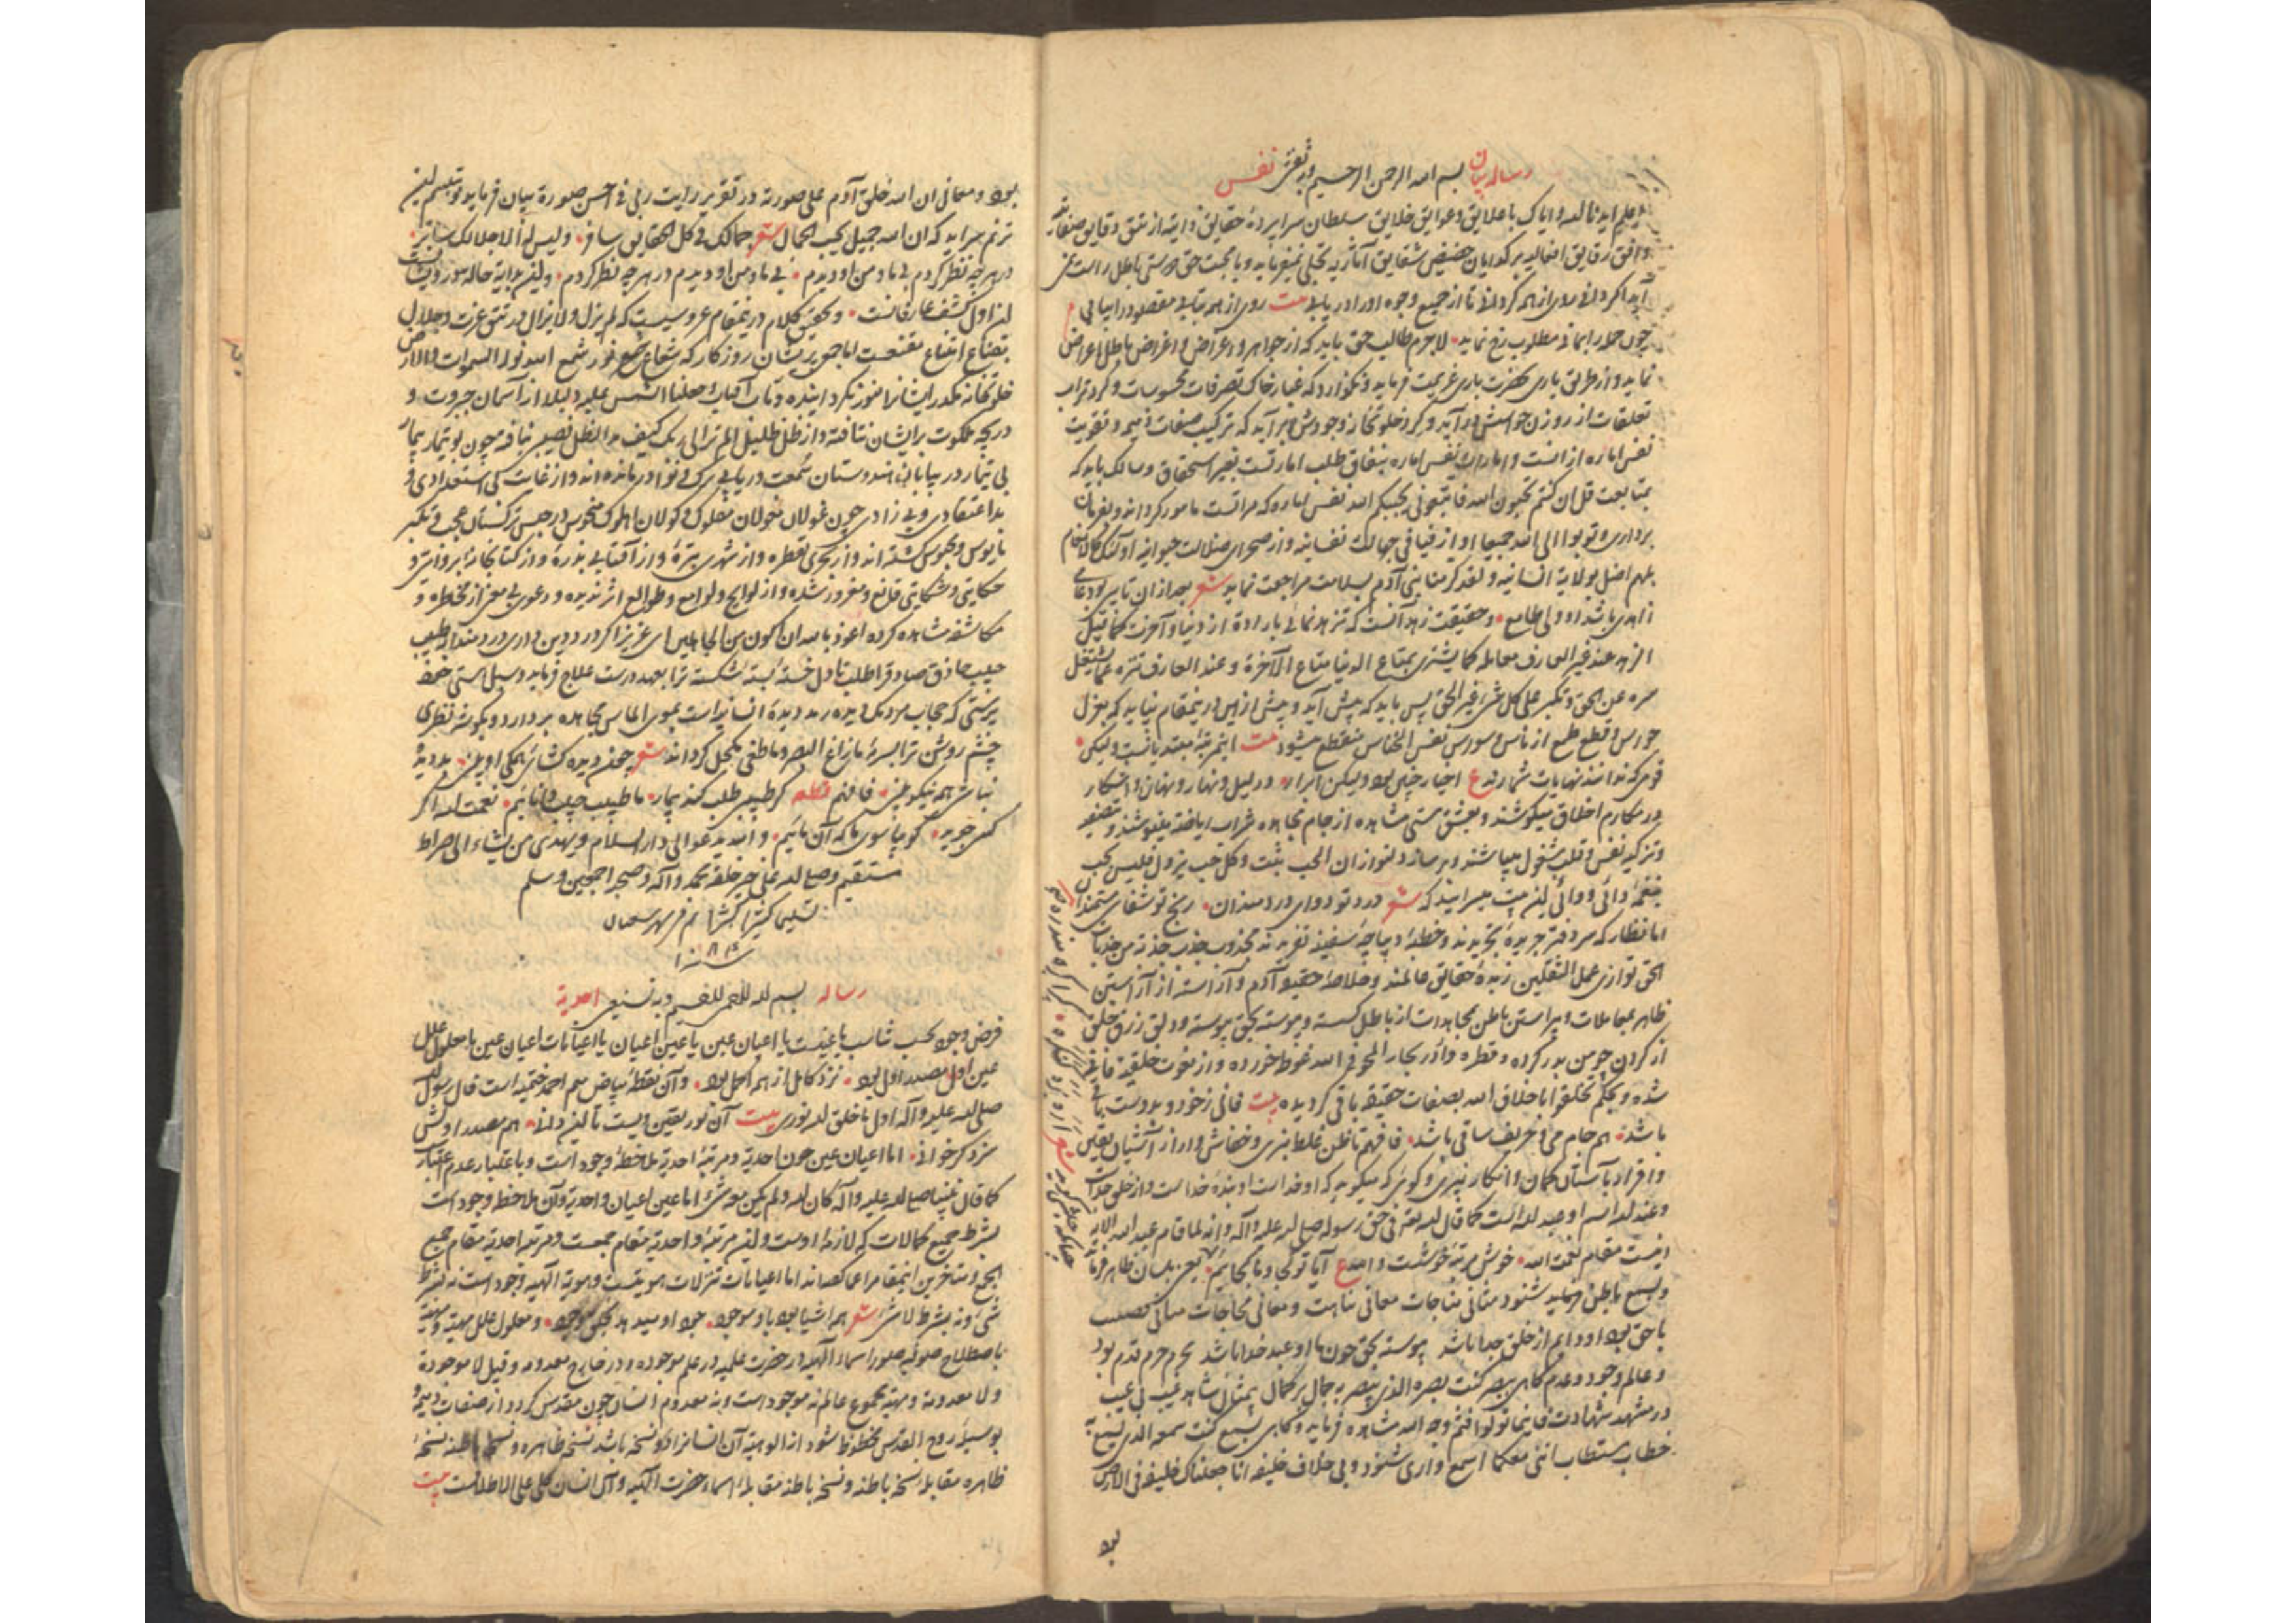 رساله بیان بسم الله الرحمن الرحیم وبه نستعین نفس
اعلم ایدنا الله وایاک با علایق وعوایق خلایق سلطان سراپرده حقایق ذاتیه از تتق دقایق صفاتیه
وافق رقایق افعالیه بر کدایان حضیض شقایق آثاریه تجلی نمیفرماید وبا محبت حق دوستی باطل راست
روی از همه کردانی تا از جمیع وجوه اورا دریابی بیت روی از همه بتاب مقصود را بیابی
چون حور را بمانی مطلوب رخ نماید لاجرم طالب حق باید که از جواهر واعراض واغراض باطل اعراض
نماید واز طریق یاری بحضرت باری عزیمت فرماید ونکذارد که غبار خاک تصرفات محسوسات وکرد تراب
تعلقات از روزن حواسش درآید وکرد خلوتخانه وجودش برآید که ترکیب صفات ذمیمه وتقویت
نفس اماره از انست وامارات نفس اماره بنفاق طلب امارتست بغیر استحقاق وسالک باید که
بمتابعت قل ان کنتم تحبون الله فاتبعونی یحببکم الله نفس اماره که مراتست مامور کرداند وبفرمان
برداری وتوبوا الی الله جمیعا او از فیافی جهالت نفسانیه واز صحرای ضلالت حیوانیه اولئک کالانعام
بلهم اضل بولایة انسانیه ولقد کرمنا بنی آدم بسلامت مراجعت نماید شعر بعد ازان تا بر بود
زاهدی باشد او ولی طامع وحقیقت زهد آنست که تنزه نمائی بارادة از دنیا وآخرت کما قیل
الزهد عند غیر العارف معامله کما یشتری بمتاع الدنیا متاع الآخرة وعند العارف تنزه عما یشغل
سره عن الحق وتکبر علی کل شیء غیر الحق پس باید که پیش آید وپیش ازین درینمقام نیاید که بعزل
حورس وقطع طمع از ناس وسورس نفس الخناس منقطع میشود بیت اینمرتبه مبتدیانست ولیکن
قومی که ندانند نهایات شمارند ع احیار چنین بود ولیکن ابرار ودر لیل ونهار ونهان وآشکار
در مکارم اخلاق میکوشند وبعشق مستی مشاهده از جام مجاهده شراب ریاضت مینوشند وتصفیه
وتزکیه نفس وقلب مشغول میباشند وبر ساز دلنواز ان الحب یثبت وکل حب یزول فلیس بحب
بنغمه دائی ودوائی این بیت میسرایند که شعر درد تو دوای دردمندان رنج تو شفای مستمندان
اما نظار که سر دفتر جریده تجریدند وخطبه دیباچه سفینه تفرید نه مجذوب جذب جذبة من جذبات
الحق توازی عمل الثقلین زبده حقایق عالمند وخلاصه حقیقه آدم وآزاسته از آراستن
ظاهر بمعاملات وپیراستن باطن بمجاهدات از باطل کسسته وپیوسته بحق پیوسته ودلق زرق خلق
از کردن چوبین بدر کرده وقطره وار در بحار المحو فی الله غوطه خورده واز نعوت خلقیة فانی
شده وبحکم تخلقوا باخلاق الله بصفات حقیقه باقی کردیده بیت فانی ز خود وبدوست باقی
باشد هم جام می وحریف ساقی باشد فافهم تا ظن غلط نبری وخفاش وار از آشیان یقین
واقرار بآستان کمان وانکار نپری وکوئی که میکوید که او خداست او بنده خداست واز خلق جداست
وعند الله اسم او عبد الله است کما قال الله تعالی فی حق رسوله صلی الله علیه وآله وانه لما قام عبد الله الآیه
اینست مقام نعمت الله خوش مرتبه خوشست والله ع آیا تو کجا وما کجائیم یعنی بلسان ظاهر فرماید
وبسمع باطن فرماید شنود مثانی مناجات معانی مناجات ومعانی محاجات مبانی
با حق بود او دایم از خلق جدا باشد پیوسته بحق چون ما او عبد خدا باشد محرم حرم قدم بود
وعالم وجود وعدم کاهی ببصر کنت بصره الذی یبصر به جمال بر کمال بیمثالی مشاهد غیب فی غیب
در مشهد شهادت فاینما تولوا فثم وجه الله مشاهده فرماید وکاهی بسمع کنت سمعه الذی یسمع به
خطاب مستطاب اننی معکما اسمع واری شنود وبی خلاف خلیفه انا جعلناک خلیفه فی الارض
بود
بود ومعانی ان الله خلق آدم علی صورته در تقریر رایت ربی فی احسن صورة بیان فرماید وتبسم این
ترنم سراید که ان الله جمیل یحب الجمال شعر جمالک فی کل الحقایق سافر ولیس له الا جلالک ساتر
در هر چه نظر کردم بی ما ومن او دیدم بی ما ومن او دیدم در هر چه نظر کردم واین بدایة حاله درویشانست
این اول کشف عارفانست وتحقیق کلام درینمقام عروسیست که لم یزل ولا یزال در تتق عزت وجلال
بقناع امتناع مقنعست اما جمع پریشان روزکار که شعاع شمع نور شمع الله نور السموات والارض
خلوتخانه مکدر ایشانرا منور نکردانیده وتاب آفتاب وجعلنا الشمس علیه دلیلا از آسمان جبروت و
دریچه ملکوت بر ایشان نتافته واز ظل ظلیل الم تر الی ربک کیف مد الظل نصیبی نیافته چون بوتیمار بیمار
بی تیمار در بیابان هندوستان سمعت دریابی برک بی نوا درمانده اند واز غایت کم استعدادی و
بد اعتقادی وبی زادی چون غولان مغولان مفلوک وکولان اهلوک منحوس در حبس ترکستان عجب وتکبر
مایوس ومحبوس کشته اند واز بحری بقطره واز شهدی بتره واز آفتابی بذره واز کتابخانه بر ورقی و
حکایتی وشکایتی قانع ومغرور شده واز لوایح ولوامع وطوالع اثر ندیده ودعوی بی معنی از مخاطره و
مکاشفه مشاهده کرده اعوذ بالله ان اکون من الجاهلین ای عزیز اکر درد دین داری دردمندانه طبیب
حبیب حاذق صادق را طلب تا دل خسته بسته شکسته ترا بعهد درست علاج فرماید وسبل هستی خط
پرستی که حجاب مردمک دیده رمد دیده انسانیتست بموی الماس مجاهده بردارد وبکوشه نظری
چشم روشن ترا بسرمه ما زاغ البصر وما طغی مکحل کرداند شعر چون دیده کشائی همکی او بینی بد دیده
نباشی همه نیکو بینی فافهم قطعه کر طبیبی طلب کند بیمار ما طبیب حبیب دانائیم نعمت الله اکر
کسی جوید کو بیا سوی ما که آن مائیم والله یدعو الی دار السلام ویهدی من یشاء الی صراط
مستقیم وصلی الله علی خیر خلقه محمد وآله وصحبه اجمعین وسلم
تسلیما کثیرا کثیرا تم فی شهر شعبان
رساله بسم الله الرحمن الرحیم وبه نستعین احدیة
فرض وجود بحسب شاب یا عینست یا اعیان عین یا عین اعیان یا اعیانات اعیان عین یا معلول علل
عین اول مصدر اول بود نزد کامل از همه اکمل بود وآن نقطه بیاض میم احمد ختمیه است قال رسول الله
صلی الله علیه وآله اول ما خلق الله نوری بیت آن نور یقین ویست تا این دانی هم مصدر اولش
سزد کر خوانی اما اعیان عین چون احدیة ومرتبه احدیة ملاحظه وجود است وباعتبار عدم اعتبار
کما قال نبینا صلی الله علیه وآله کان الله ولم یکن معه شیء اما عین اعیان واحدیة وآن ملاحظه وجود است
بشرط جمیع کمالات که لازمه اوست واین مرتبه واحدیة مقام جمعست ومرتبه احدیة مقام جمع
الجمع ومتاخرین اینمقام را عما کفته اند اما اعیانات تنزلات هویتست وهویة الهیه وجود است نه بشرط
شیء ونه بشرط لا شیء شعر همه اشیا بود باو موجود جود او میدهد بکل وجود ومعلول علل مهیة ومهیة
باصطلاح صوفیه صور اسماء الهیه در حضرت علمیه در علم موجوده ودر خارج معدومه وقیل لا موجودة
ولا معدومة ومهیة مجموع عالم نه موجود است ونه معدوم انسان چون مقدس کردد از صفات ذمیمه و
بوسیله روح القدس محظوظ شود از الوهیة آن انسانرا دو نسخه باشد نسخه ظاهره ونسخه باطنه نسخه
ظاهره مقابله نسخه باطنه ونسخه باطنه مقابله اسماء حضرت الهیه وآن انسان کلی علی الاطلاقست بیت